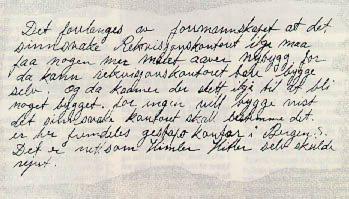 Det forlanges av formannskapet at det
sinnsvake Rekvisjonskontort ikje maa
faa nogen mer makt aaver nybygg for
da kann rekvisjonskontort bare bygge
selv. og da kommer der slett ikje til at bli
noget bygget. for ingen vill bygge vist
det sinnsvake kontort skall bestemme det.
er her fremdeles gestapo kontor i Bergen?.
Det er nett som Himler Hitler selv skulde